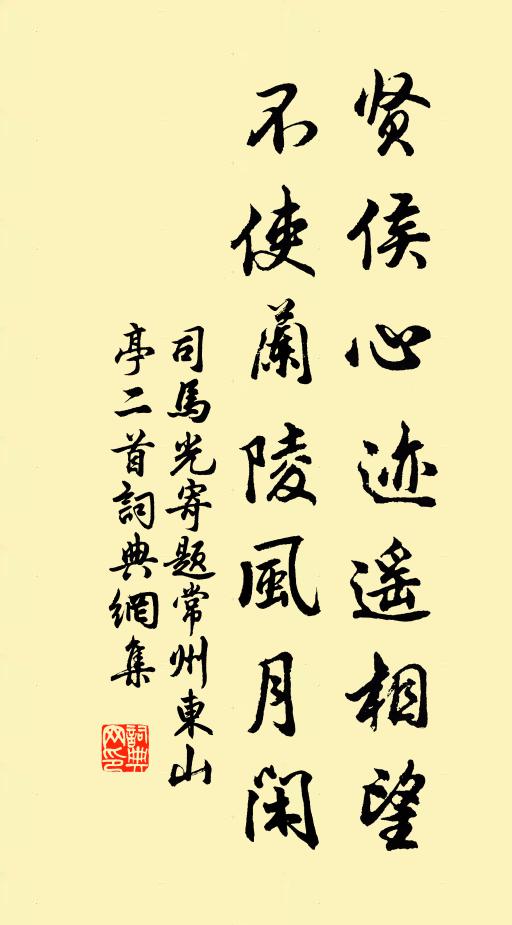 贤侯心迹遥相望
不使蘭陵風月闲
司馬光寄题常州東山
亭二首詞典網集
詞典
网印